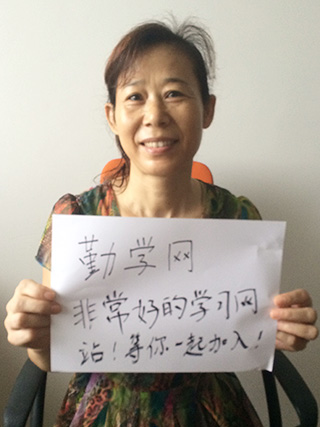 勤学网xx
非常好的学习网
站！等你一起加入！